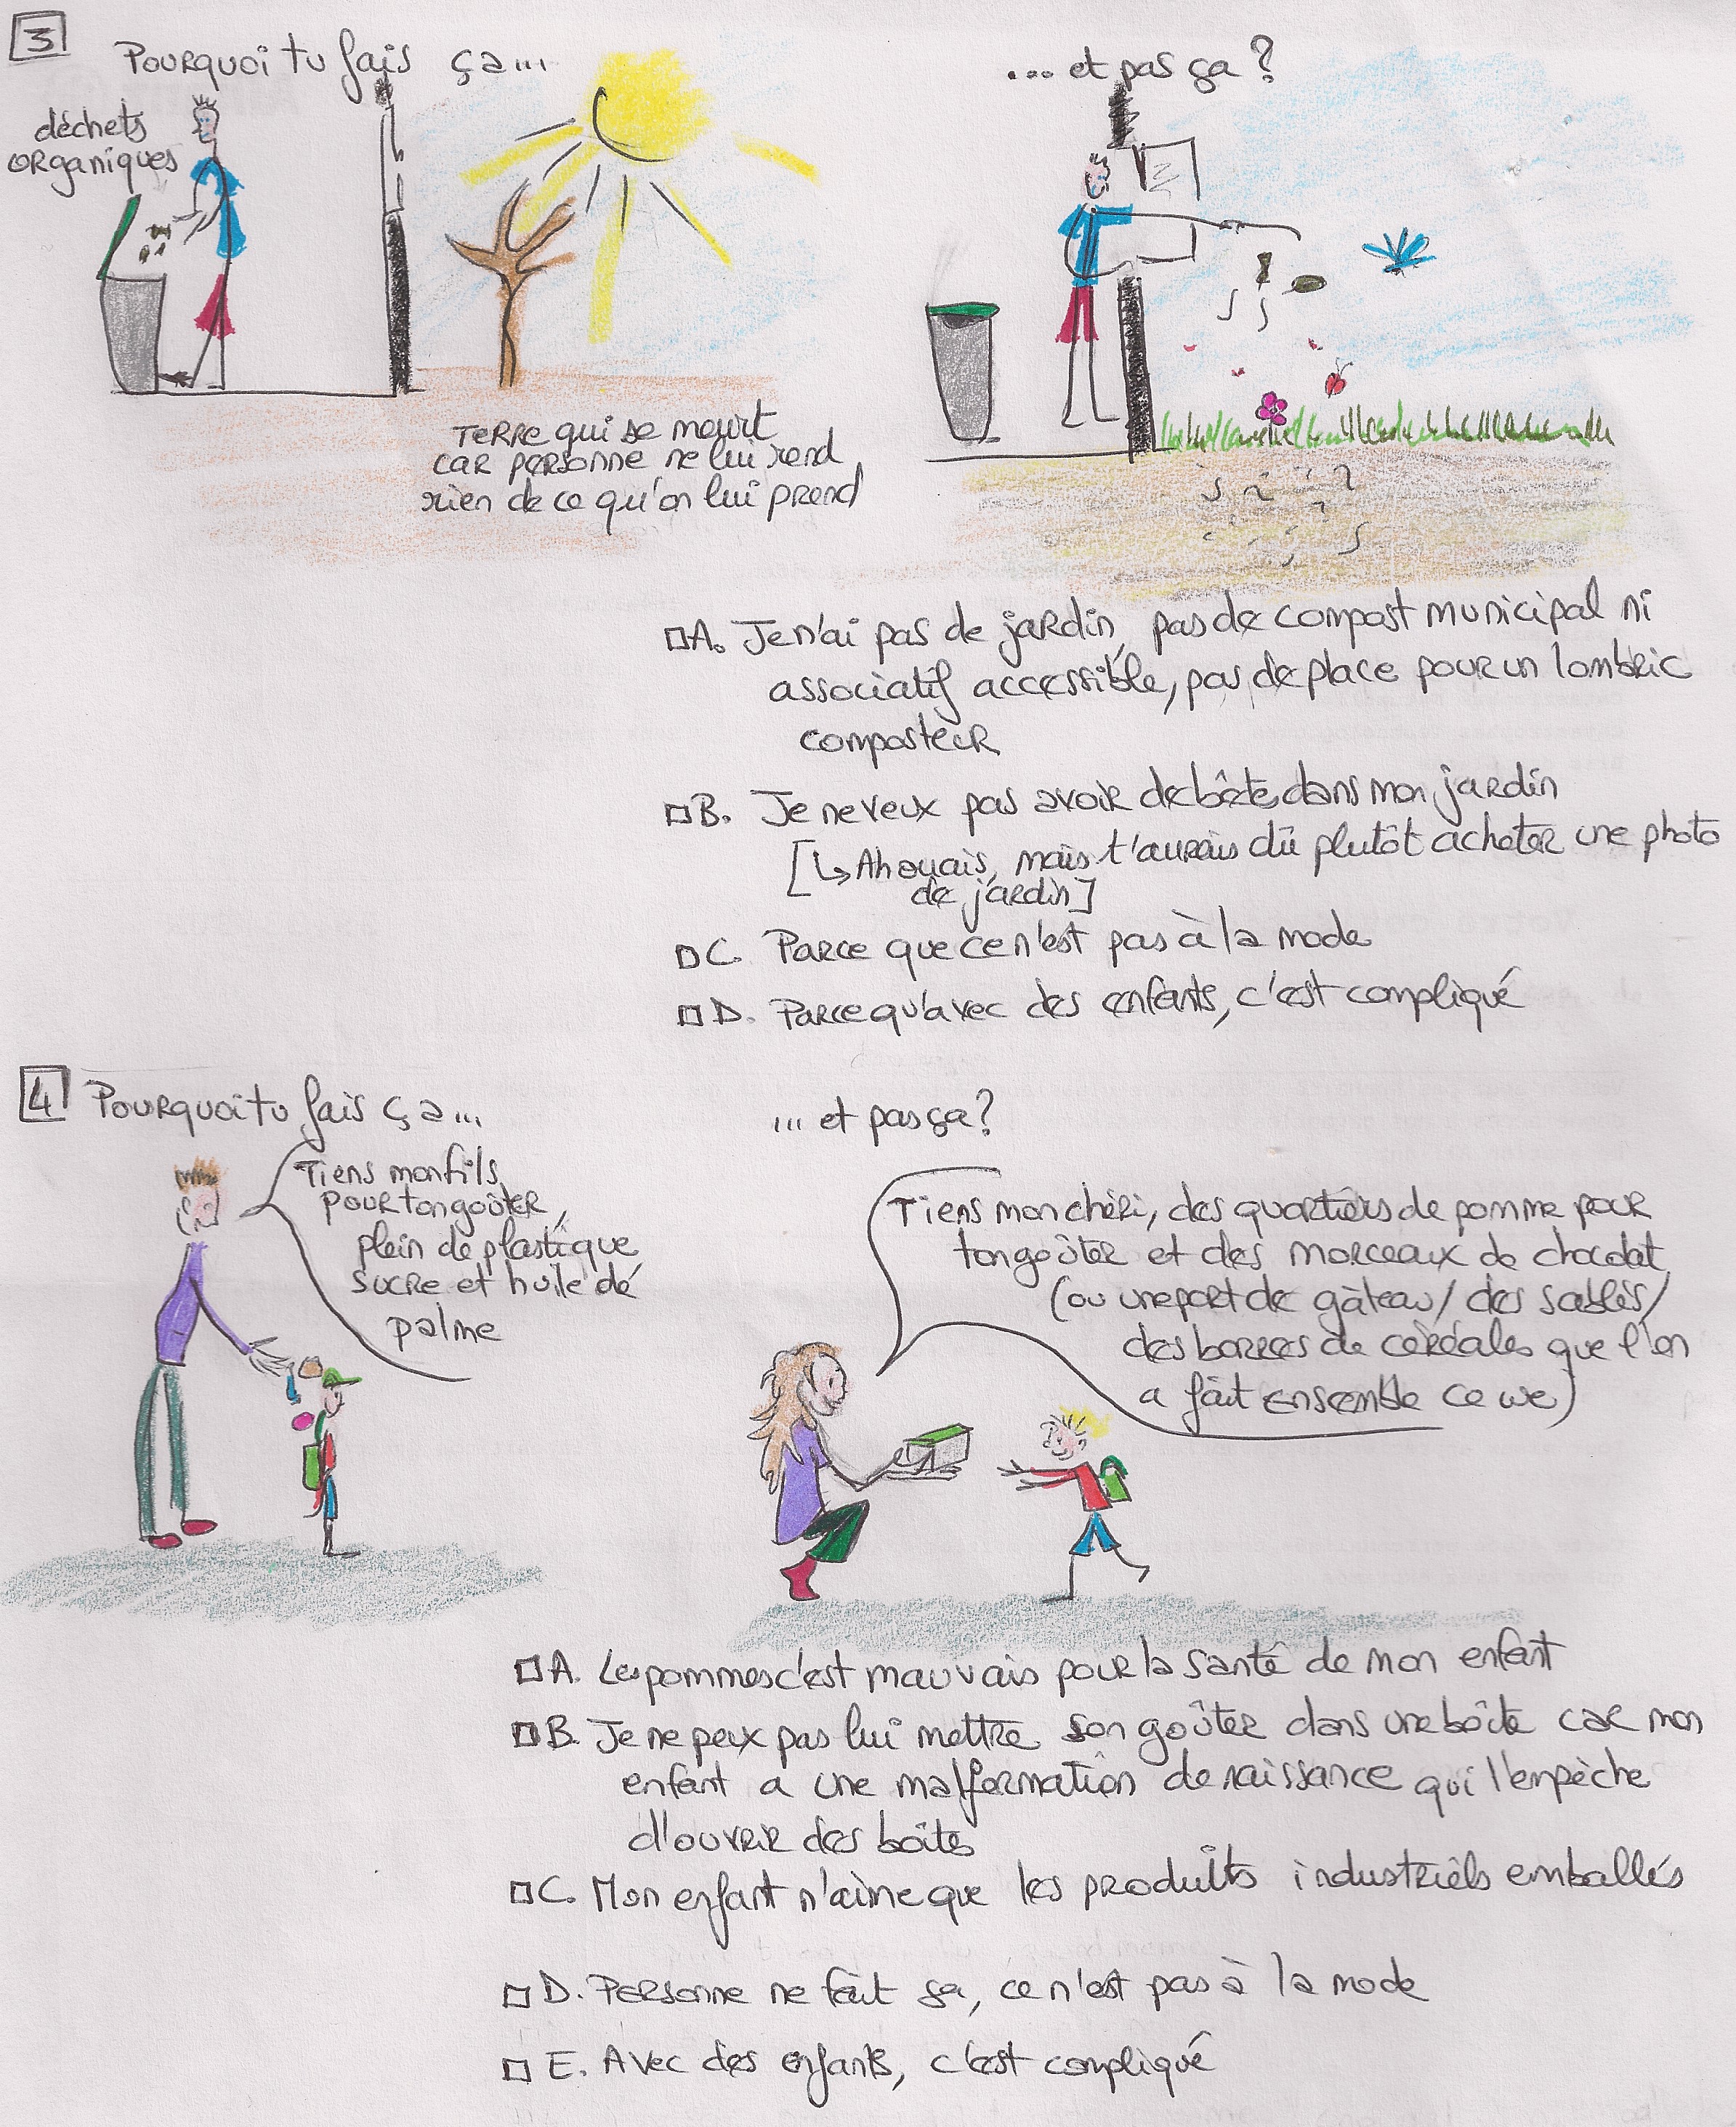 3
Pourquoi tu fais ça...
... et pas ça?
déchets
organiques
Terre qui se meurt
car personne ne lui rend
rien de ce qu'on lui prend
A. Je n'ai pas de jardin, pas de compost municipal ni
associatif accessible, pas de place pour un lombric
composteur
B. Je ne veux pas avoir de bête dans mon jardin
[↳ Ah ouais, mais t'aurais dû plutôt acheter une photo
de jardin]
C. Parce que ce n'est pas à la mode
D. Parce qu'avec des enfants, c'est compliqué
4
Pourquoi tu fais ça...
... et pas ça?
Tiens mon fils,
pour ton goûter,
plein de plastique
sucre et huile de
palme
Tiens mon chéri, des quartiers de pomme pour
ton goûter et des morceaux de chocolat
(ou une part de gâteau/ des sablés/
des barres de céréales que l'on
a fait ensemble ce we)
A. Les pommes c'est mauvais pour la santé de mon enfant
B. Je ne peux pas lui mettre son goûter dans une boîte car mon
enfant a une malformation de naissance qui l'empèche
d'ouvrir des boîtes
C. Mon enfant n'aime que les produits industriels emballés
D. Personne ne fait ça, ce n'est pas à la mode
E. Avec des enfants, c'est compliqué